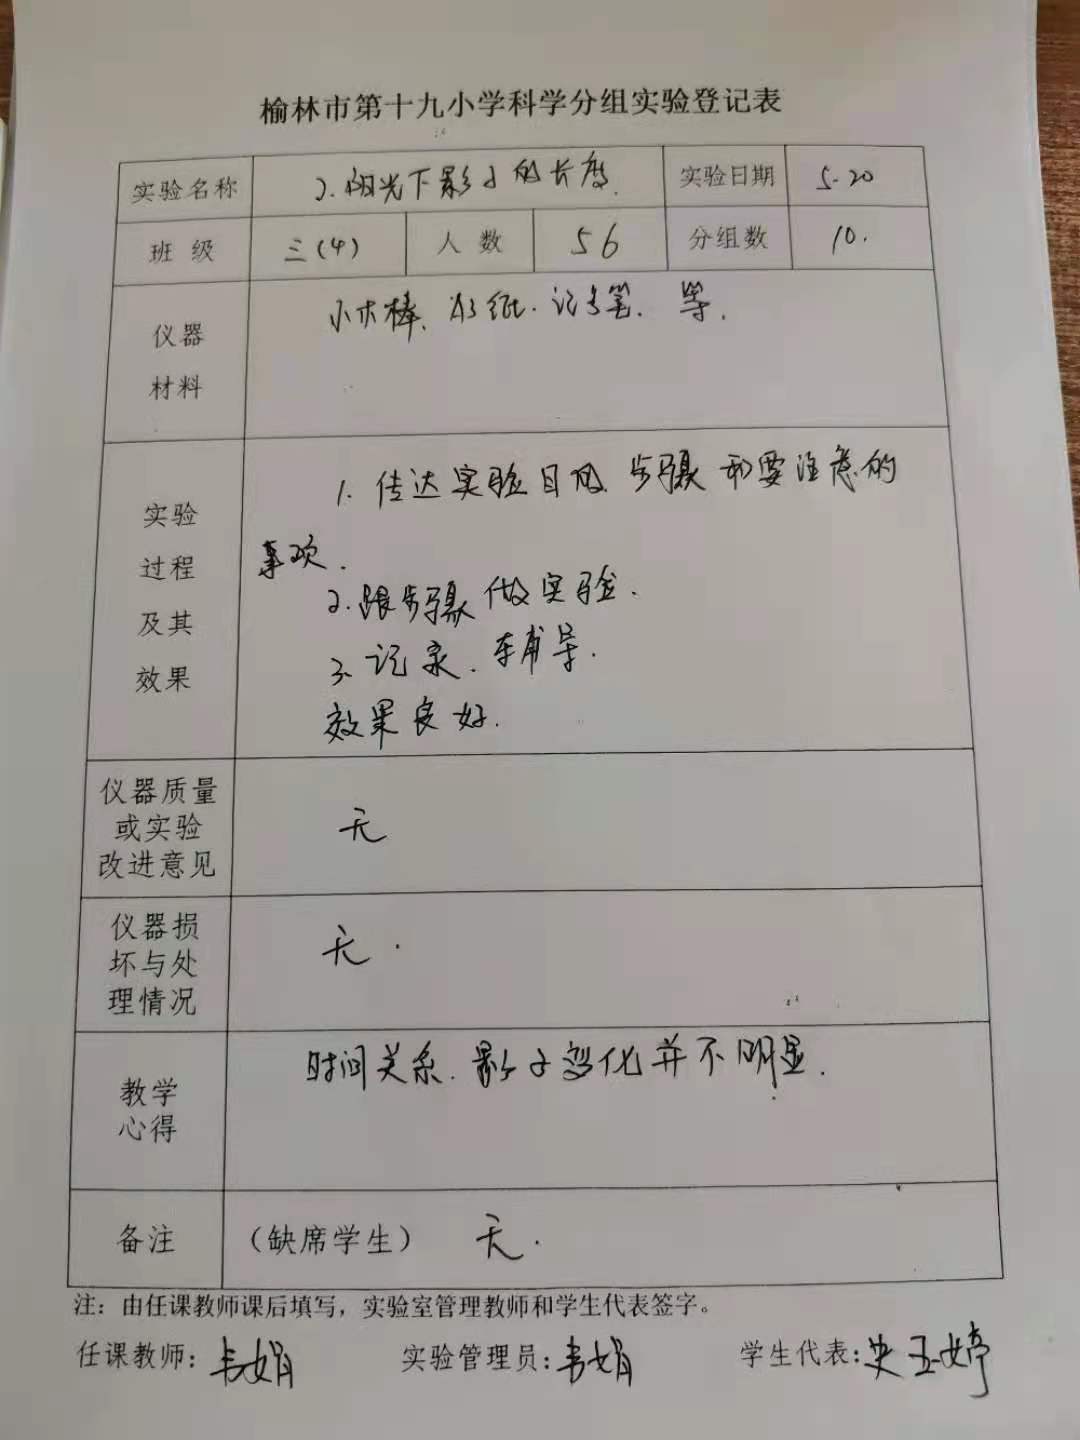 榆林市第十九小学科学分组实验登记表
实验名称 2.阳光下影子的长度. 实验日期 5.20
班级 三(4) 人数 56 分组数 10.
仪器材料 小木棒、白纸、记号笔、等.
实验过程及其效果
1. 传达实验目的、步骤和要注意的
事项.
2. 跟步骤做实验.
3. 记录、辅导.
效果良好.
仪器质量或实验改进意见 无
仪器损坏与处理情况 无.
教学心得 时间关系.影子变化并不明显.
备注 (缺席学生) 无.
注：由任课教师课后填写，实验室管理教师和学生代表签字。
任课教师:韦娟 实验管理员:韦娟 学生代表:史玉婷